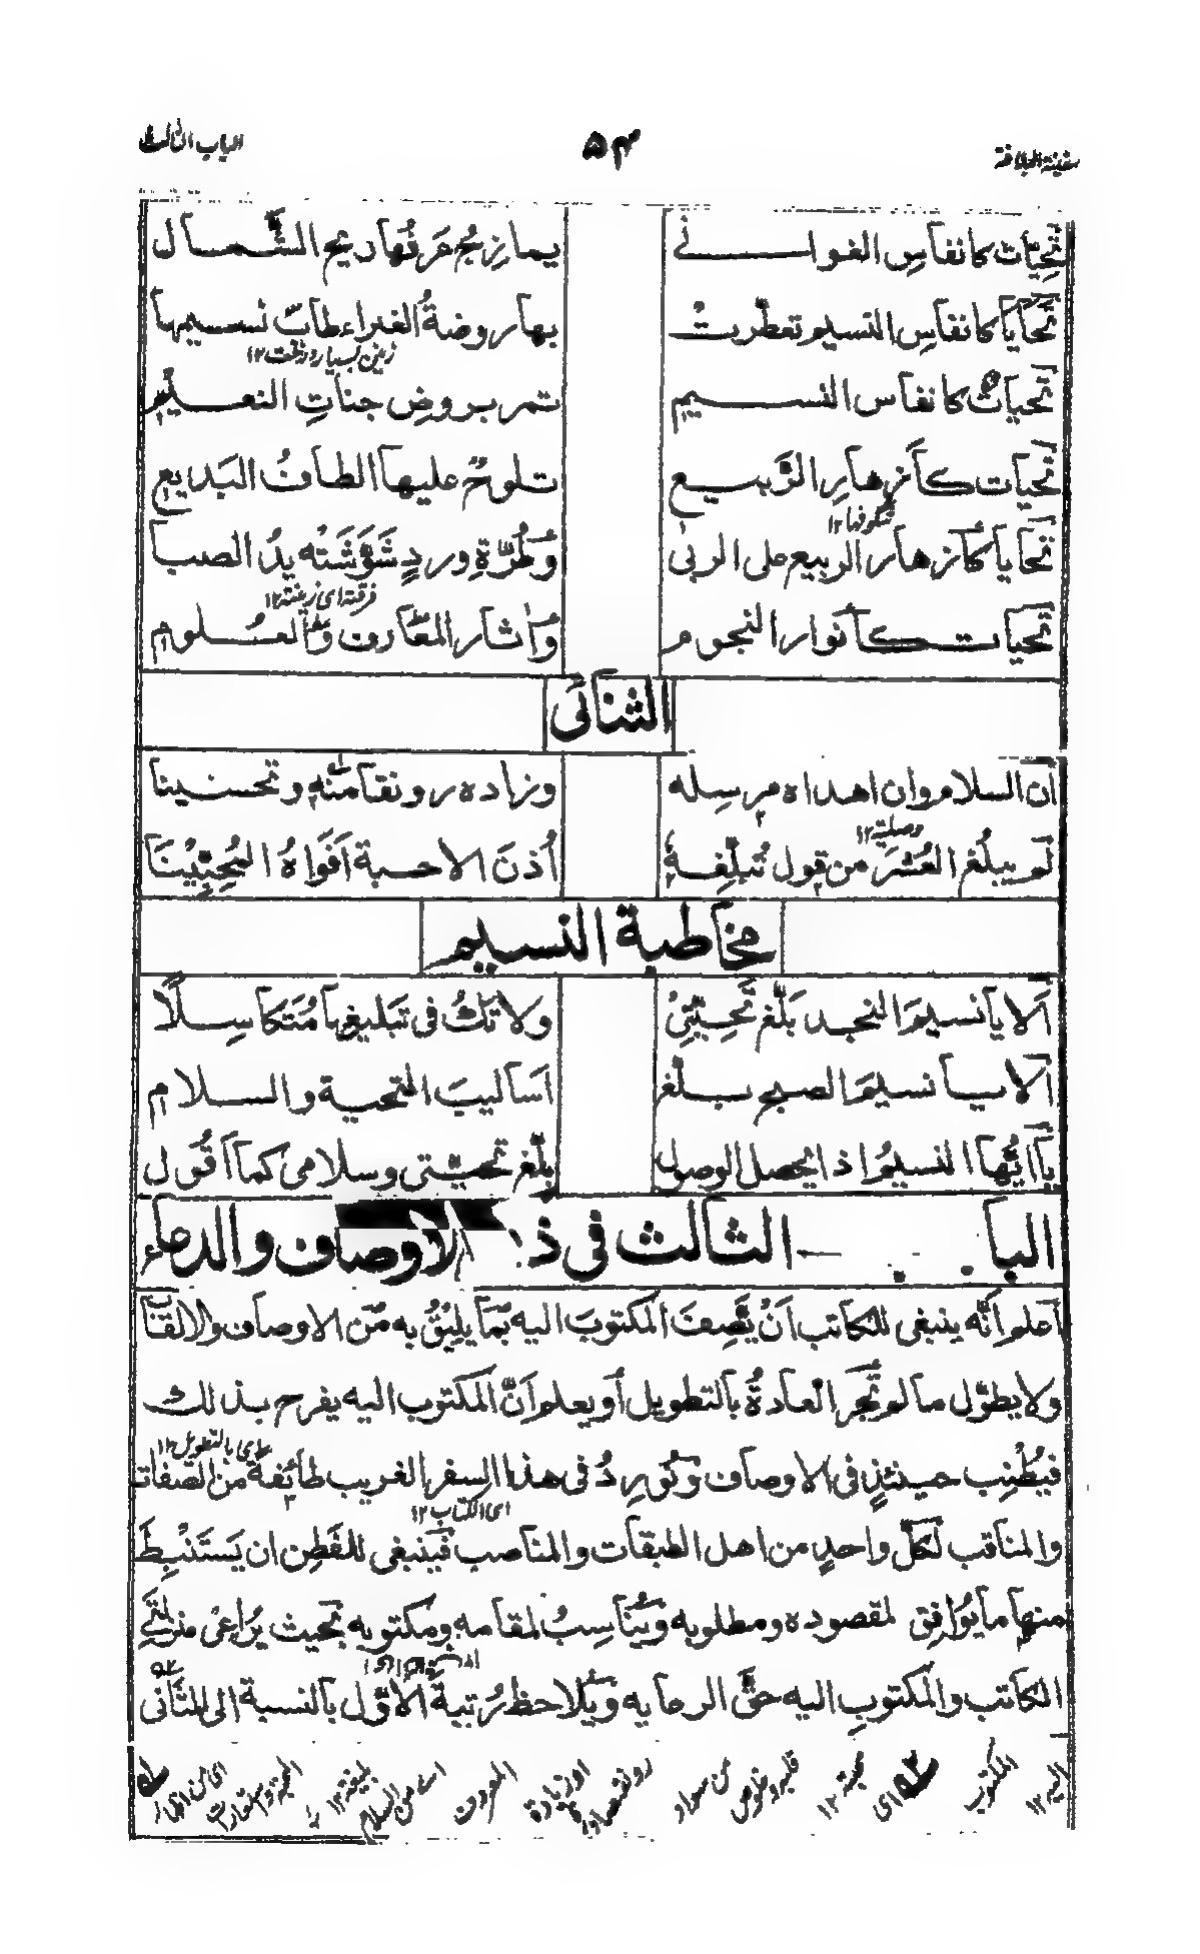 سفينة البلاغة ۵۴ الباب الثالث
تحيات كانفاس الغوانے يمازج عرفها ريح الشمال
تحايا كانفاس النسيم تعطرت بها روضة الغناء طاب نسيمها
تحيات كانفاس النسيم تمر بروض جنات النعيم
تحيات كأزهار الربيع تلوح عليها الطاف البديع
شكوفها ١٢
تحايا كأزهار الربيع على الربى وطرة ورد شوشته يد الصبا
تحيات كأنوار النجوم وآثار المعارف والعلوم
الثنائى
ان السلام وان اهداه مرسله وزاده رونقا منه وتحسينا
لم يبلغ العشر من قول تبلغه أذن الاحبة افواه المحبينا
مخاطبة النسيم
الا يا نسيم النجد بلغ تحيتى ولا تك فى تبليغها متكاسلا
الا يا نسيم الصبح بلغ اساليب التحية والسلام
يا ايها النسيم اذا يحصل الوصول بلغ تحيتى وسلامى كما اقول
البا الثالث فى الاوصاف والدعاء
اعلم انه ينبغى للكاتب ان يصف المكتوب اليه بما يليق به من الاوصاف والالقاب
ولا يطول مالم تجر العادة بالتطويل أو يعلم ان المكتوب اليه يفرح بذلك
اى بالتطويل ١٢
فيطنب حينئذ فى الاوصاف ونورد فى هذا السفر الغريب طائفة من الصفات
اى الكتاب ١٢
والمناقب لكل واحد من اهل الطبقات والمناصب فينبغى للفطن ان يستنبط
منها ما يوافق لمقصوده ومطلوبه ويناسب لمقامه ومكتوبه بحيث يراعى منزلتے
الكاتب والمكتوب اليه حق الرعايه ويلاحظ رتبة الاول بالنسبة الى الثانى
اليه ١٢ المكتوب اى من سواد المعروف اى من السلام